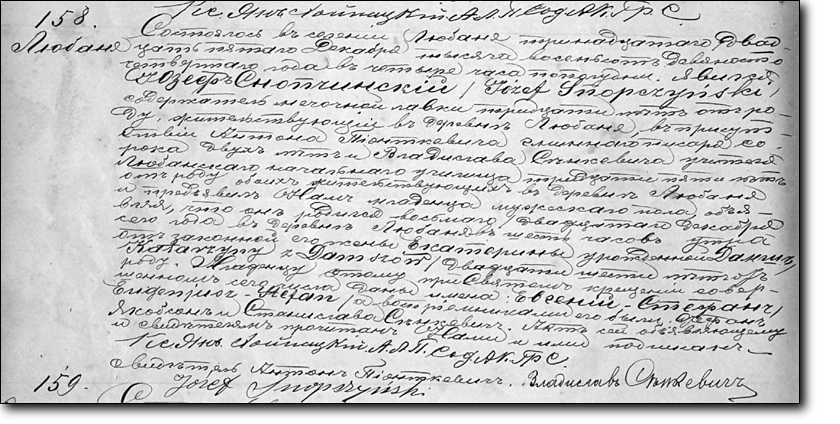 Кс. Янъ Хойнацкій А.Л.П. Сод. Ак. Гр. С.
158.
Любаня
Состоялось въ селеніи Любаня тринадцатаго Двад-
цать пятаго Декабря тысяча восемьсотъ девяносто
четвертаго года въ четыре часа пополудни. Явился
Іозефъ Снопчинскій / Józef Snopczyński /
содержатель мелочной лавки тридцати лѣтъ отъ ро-
ду, жительствующій въ деревнѣ Любаня, въ присут-
ствіи Антона Піонткевича гминнаго писаря со-
рока двухъ лѣтъ и Владислава Сенкевича учителя
Любанскаго начальнаго училища тридцати пяти лѣтъ
отъ роду обоихъ жительствующихъ въ деревнѣ Любаня
и предъявилъ Намъ младенца мужескаго пола объя-
вляя, что онъ родился восьмаго двадцатаго Декабря
сего года въ деревнѣ Любаня въ шесть часовъ утра
отъ законной его жены Екатерины урожденной
/ Katarzyny z / двадцати шести лѣтъ отъ
роду. Младенцу этому при Святомъ крещеніи совер-
шенномъ сего числа даны имена: Евгеній-Стефанъ /
Eugeniusz-Stefan / а воспріемниками его были
и Станислава Сенкевичъ. Актъ сей объявляющему
и свидѣтелямъ прочитанъ Нами и ими подписанъ
Кс. Янъ Хойнацкій А.Л.П. Сод. Ак. Гр. С.
свидѣтель Антонъ Піонткевичъ. Владиславъ Сенкевичъ
Józef Snopczyński.
159.